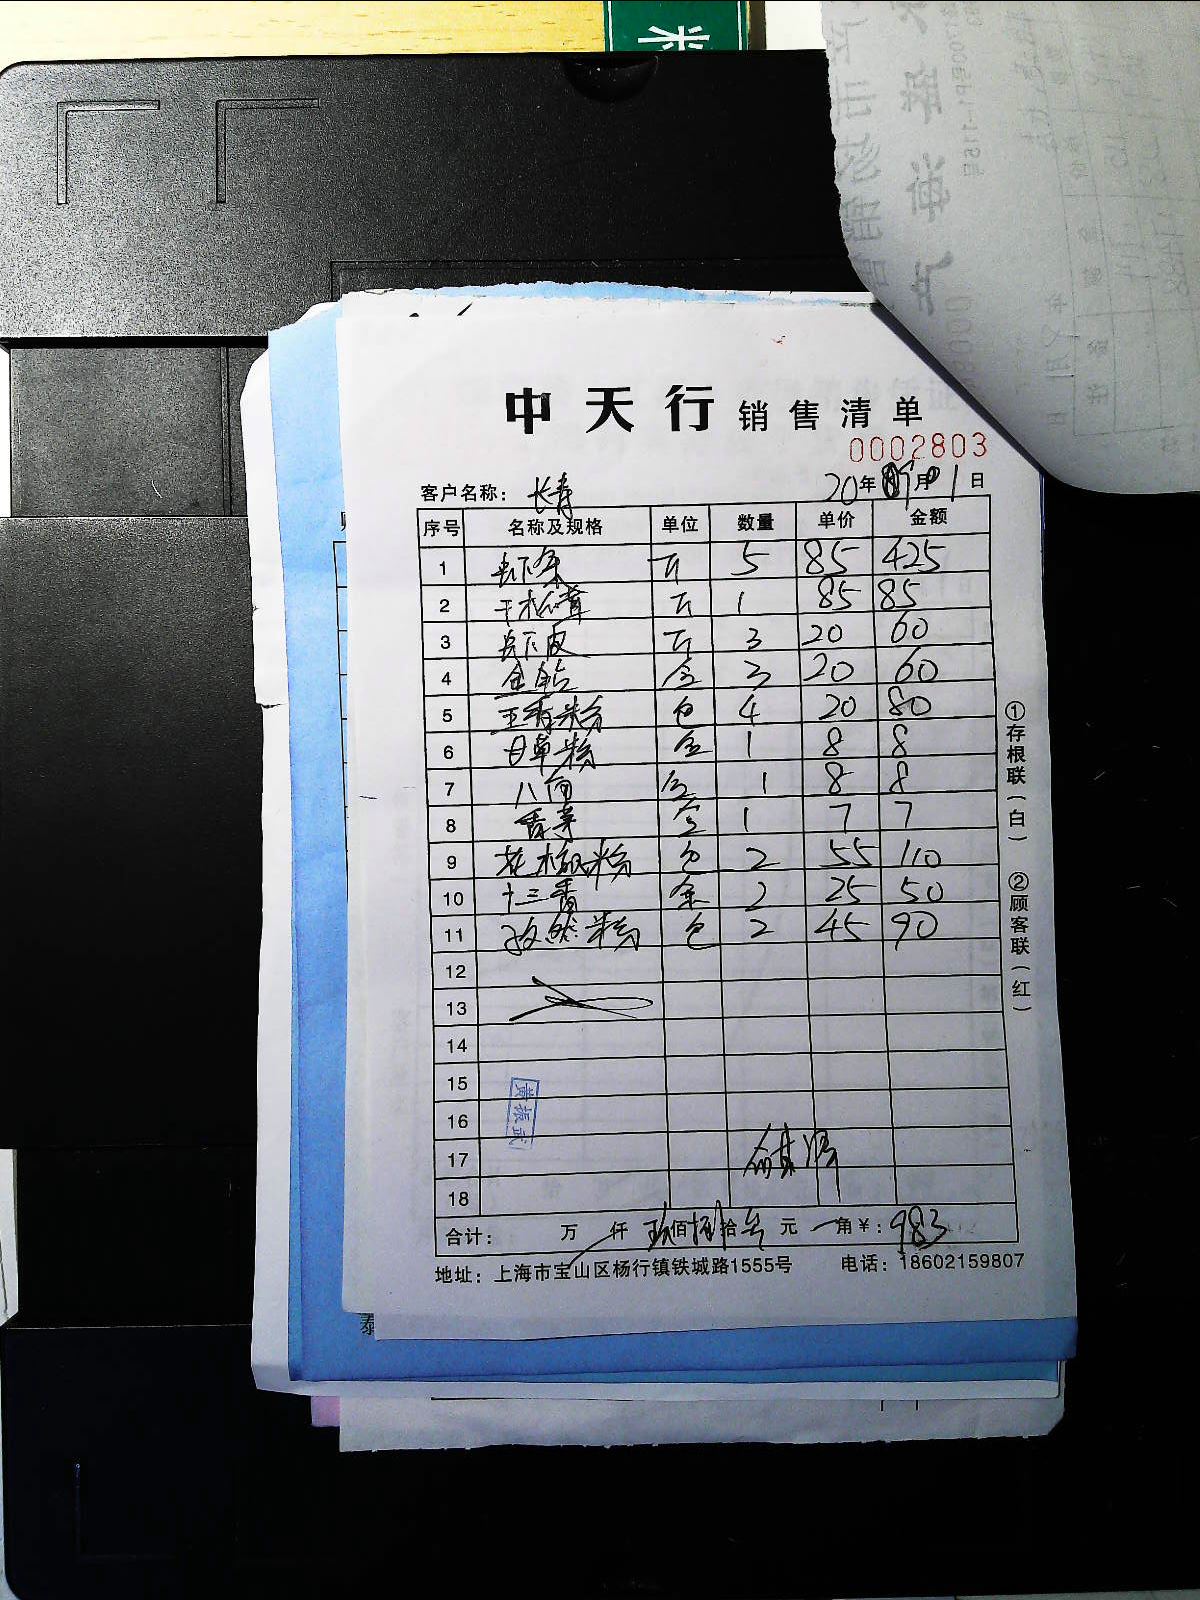 中天行 销售清单
0002803
客户名称： 长寿 20年 09月 01日
序号 名称及规格 单位 数量 单价 金额
1 虾米 斤 5 85 425
2 干松茸 斤 1 85 85
3 虾皮 斤 3 20 60
4 3 20 60
5 五香粉 包 4 20 80
6 甘草粉 盒 1 8 8
7 八角 1 8 8
8 香茅 1 7 7
9 花椒粉 包 2 55 110
10 十三香 盒 2 25 50
11 孜然粉 包 2 45 90
12
13
14
15
16
17
18
黄振武
合计： 万 仟 玖佰捌拾叁元 角￥：983
地址：上海市宝山区杨行镇铁城路1555号 电话：18602159807
①存根联（白） ②顾客联（红）